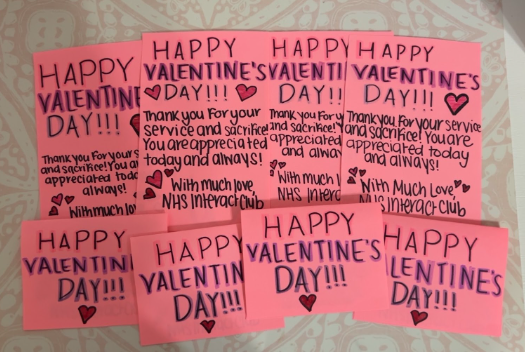 HAPPY
VALENTINE
DAY!!!
Thank you for your s
and sacrifice! You a
appreciated toda
always!
With much lo
HAPPY
VALENTINE'S
DAY!!!
Thank you for your
service and sacrifice!
You are appreciated
today and always!
With much love
NHS Interact Club
HAPPY
VALENTIN
DAY!!!
Thank you for y
and sacrifice! Y
appreciated
and alway
With much
NHS Interac
HAPPY
VALENTINE'S
DAY!!!
Thank you for your service
and sacrifice! You are
appreciated today
and always!
With Much Love
NHS Interact Club
HAPPY
VALENTIN
DAY!!!
HAPPY
VALENTIN
DAY!!!
HAPPY
VALENTINE'S
DAY!!!
HAPPY
LENTINE'S
DAY!!!